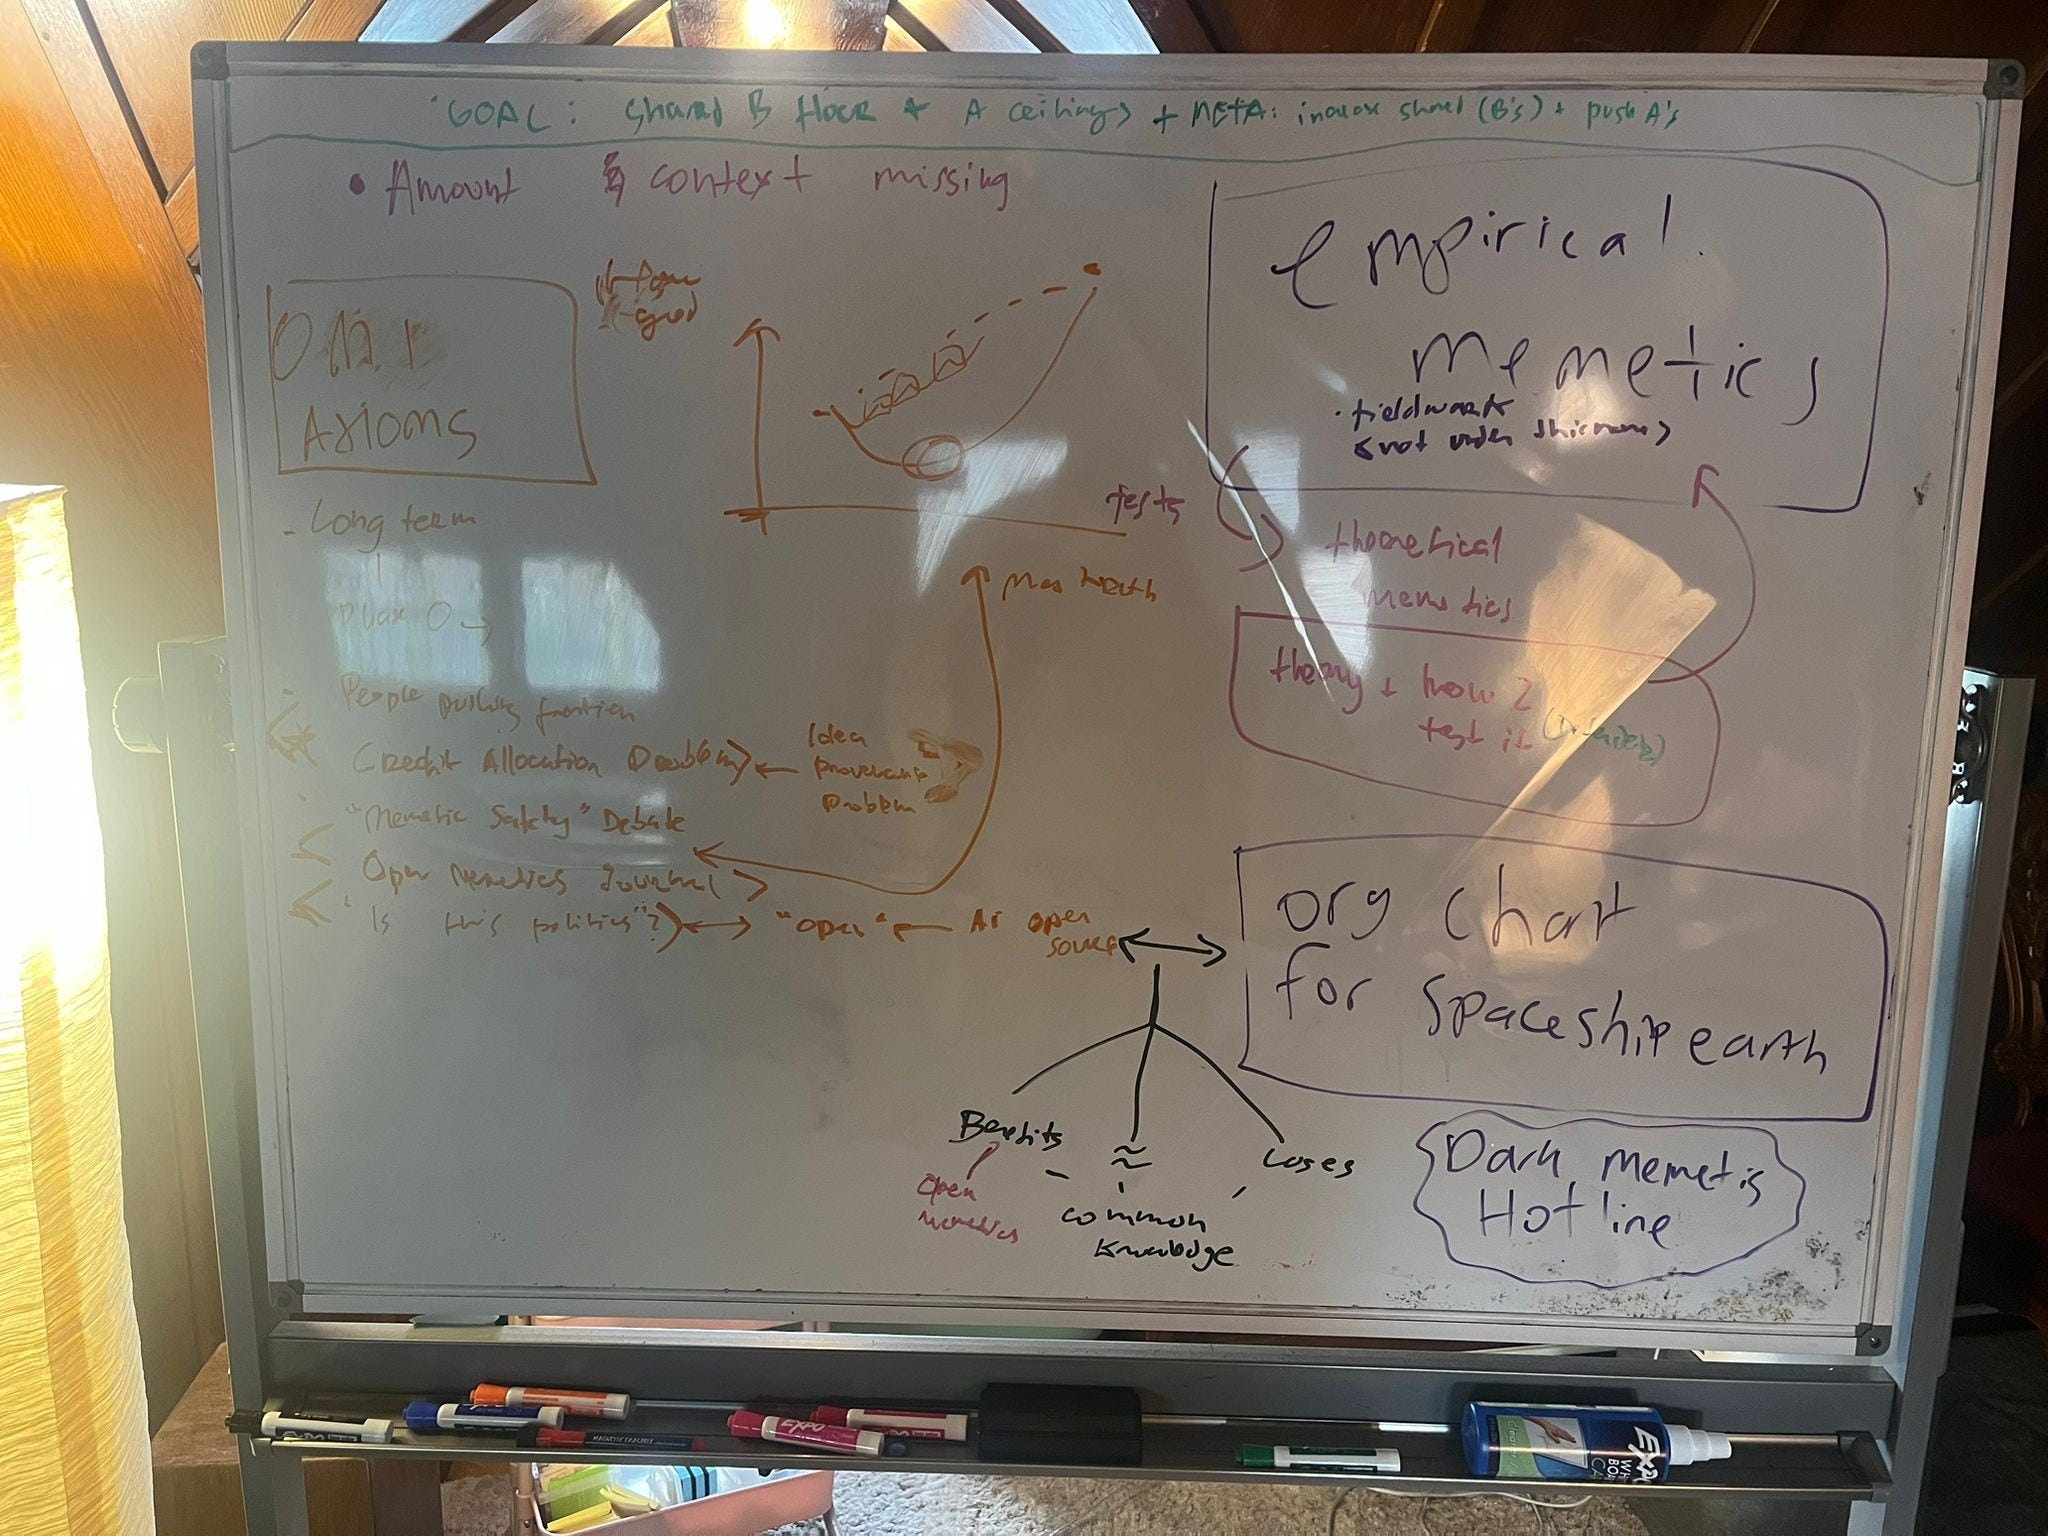 GOAL: Shared B floor + A ceilings + META: increase shared (B's) + push A's
• Amount & context missing
OMI
AXIOMS
good
tests
- Long term
Phase 0 →
People pushing frontier
Credit Allocation Problem
Idea
provenance
problem
"Memetic Safety" Debate
Open Memetics Journal
"Is this politics"?
"open"
AI open
source
empirical
memetics
• fieldwork
theoretical
memetics
theory + how 2
test it
org chart
for spaceship earth
Benefits
≈
Loses
Open
Memetics
common
knowledge
Dark memetis
Hotline
EXPO
EXPO